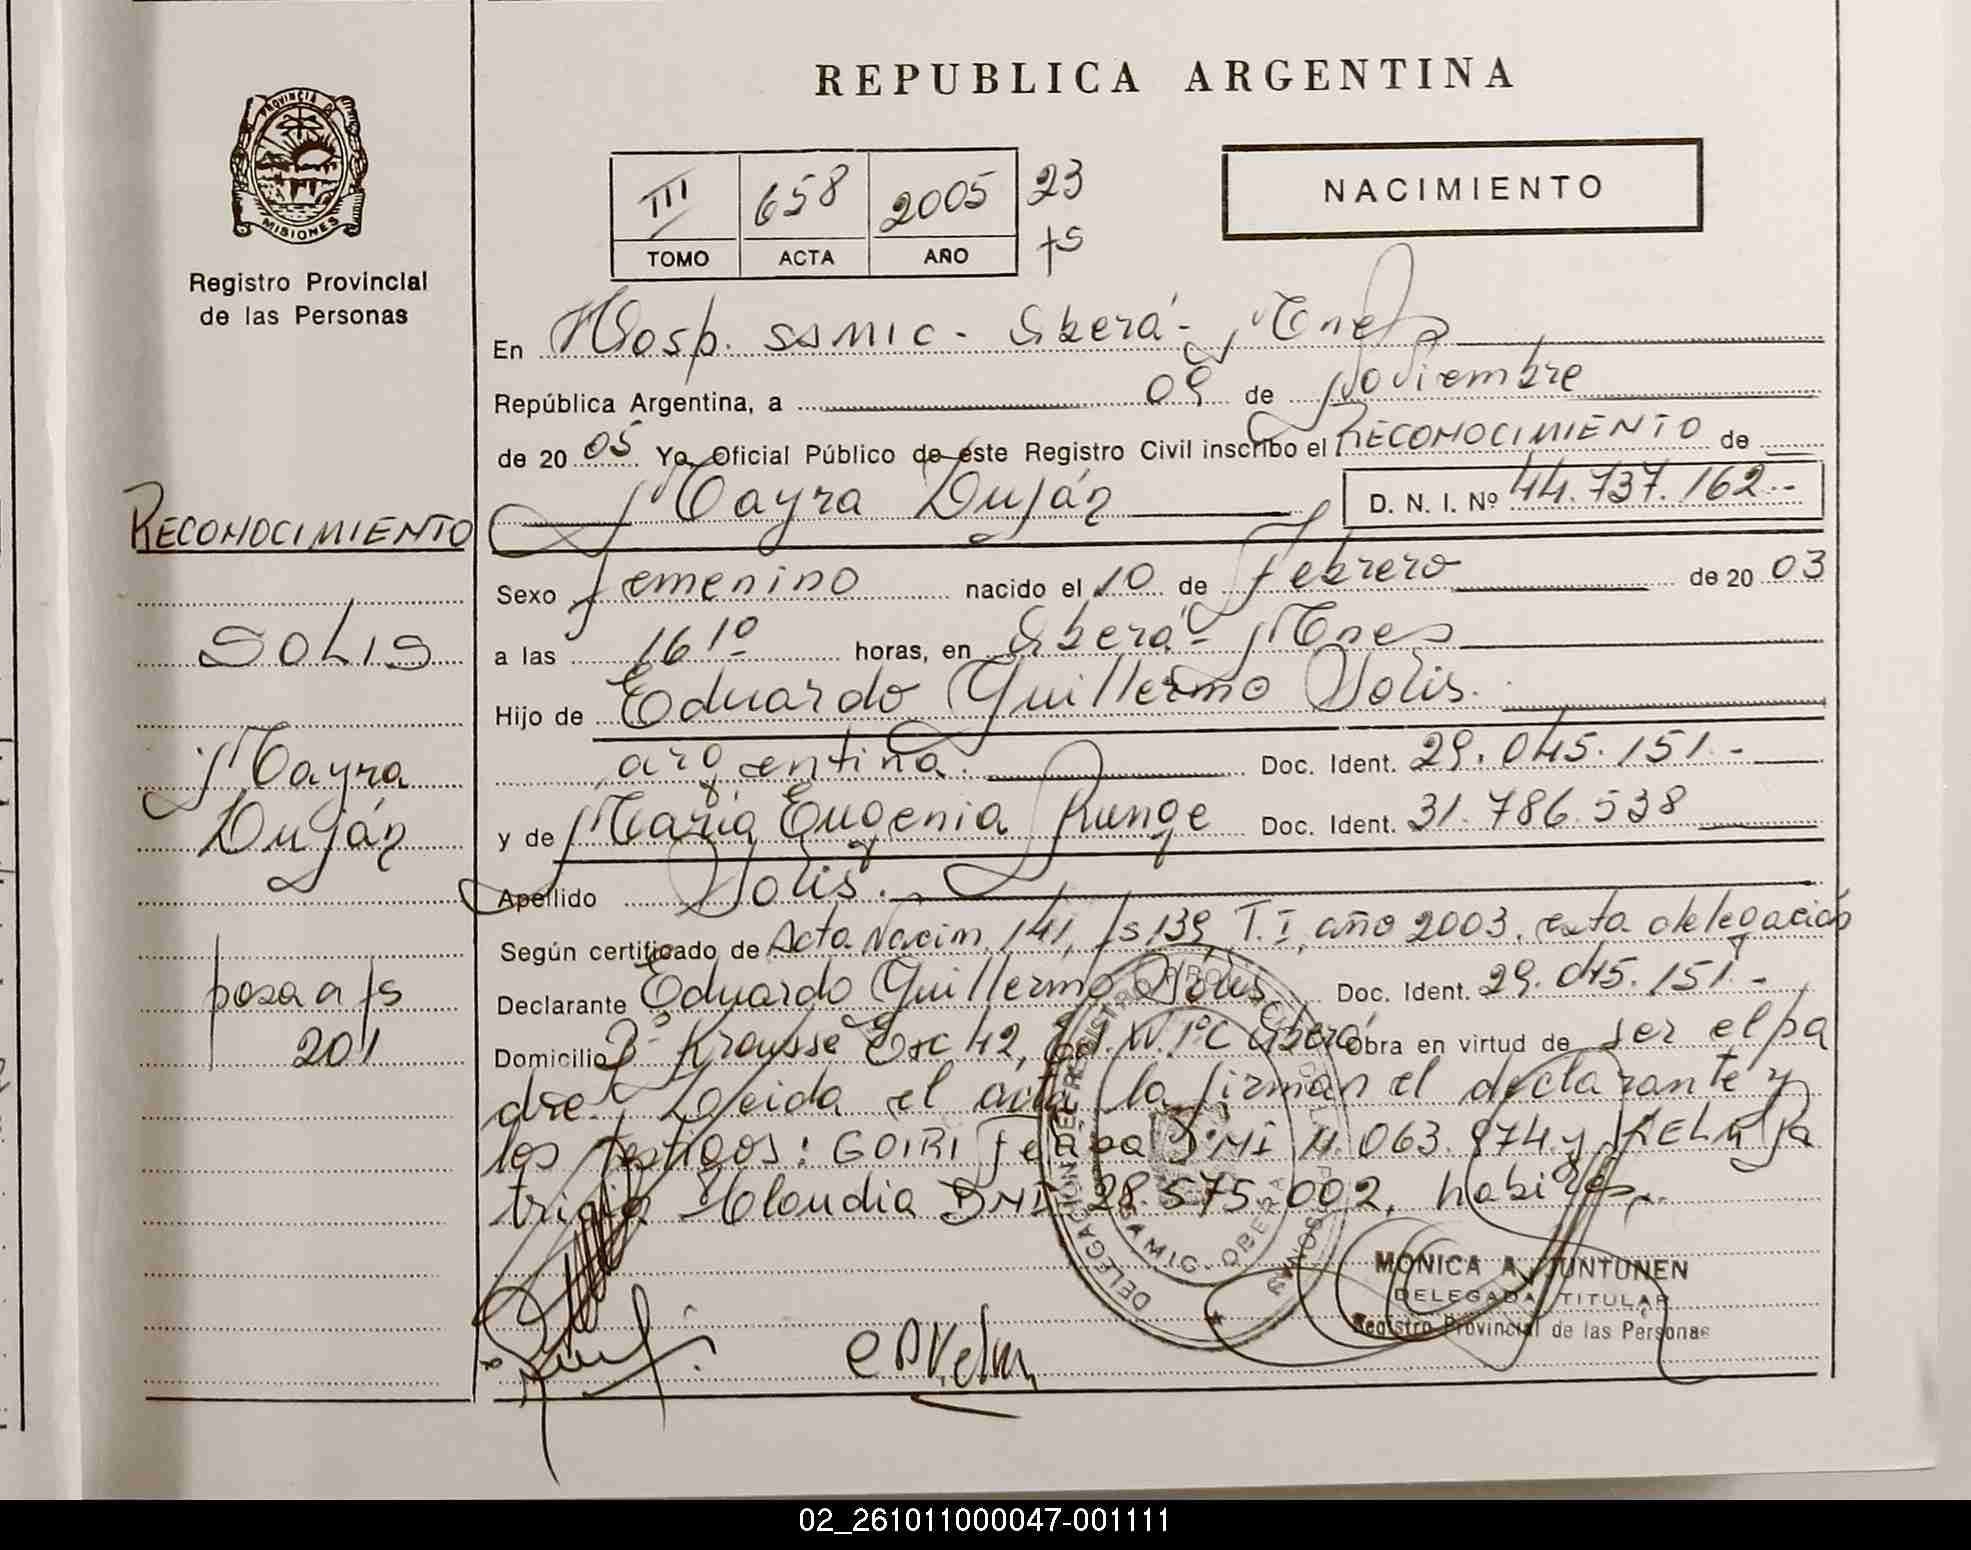 REPUBLICA ARGENTINA
PROVINCIA DE
MISIONES
Registro Provincial
de las Personas
III 658 2005 23
TOMO ACTA AÑO fs
NACIMIENTO
En Hosp. SAMIC - Oberá - Mnes
República Argentina, a 09 de Noviembre
de 20 05 Yo, Oficial Público de este Registro Civil inscribo el RECONOCIMIENTO de
Mayra Luján D. N. I. Nº 44.737.162.-
Sexo femenino nacido el 10 de Febrero de 20 03
a las 16 10 horas, en Oberá - Mnes
Hijo de Eduardo Guillermo Solis.
argentina. Doc. Ident. 29.045.151.-
y de María Eugenia Runge Doc. Ident. 31.786.538
Apellido Solis.
Según certificado de Acta Nacim. 141, fs 139 T. I, año 2003. esta delegación
Declarante Eduardo Guillermo Solis Doc. Ident. 29.045.151.-
Domicilio Bº Krausse Esc 42, Ed. IV. 1º C Oberá Obra en virtud de ser el pa
dre. Leída el acta la firman el declarante y
los testigos: GOIRI Felipa DNI 11.063.974 y KELM Pa
tricia Claudia DNI 28.575.002, hábiles.
RECONOCIMIENTO
SOLIS
Mayra
Luján
pasa a fs
201
DELEGACION DEL REGISTRO PROVINCIAL DE LAS PERSONAS
SAMIC - OBERA
MONICA A. JUNTUNEN
DELEGADA TITULAR
Registro Provincial de las Personas
02_261011000047-001111